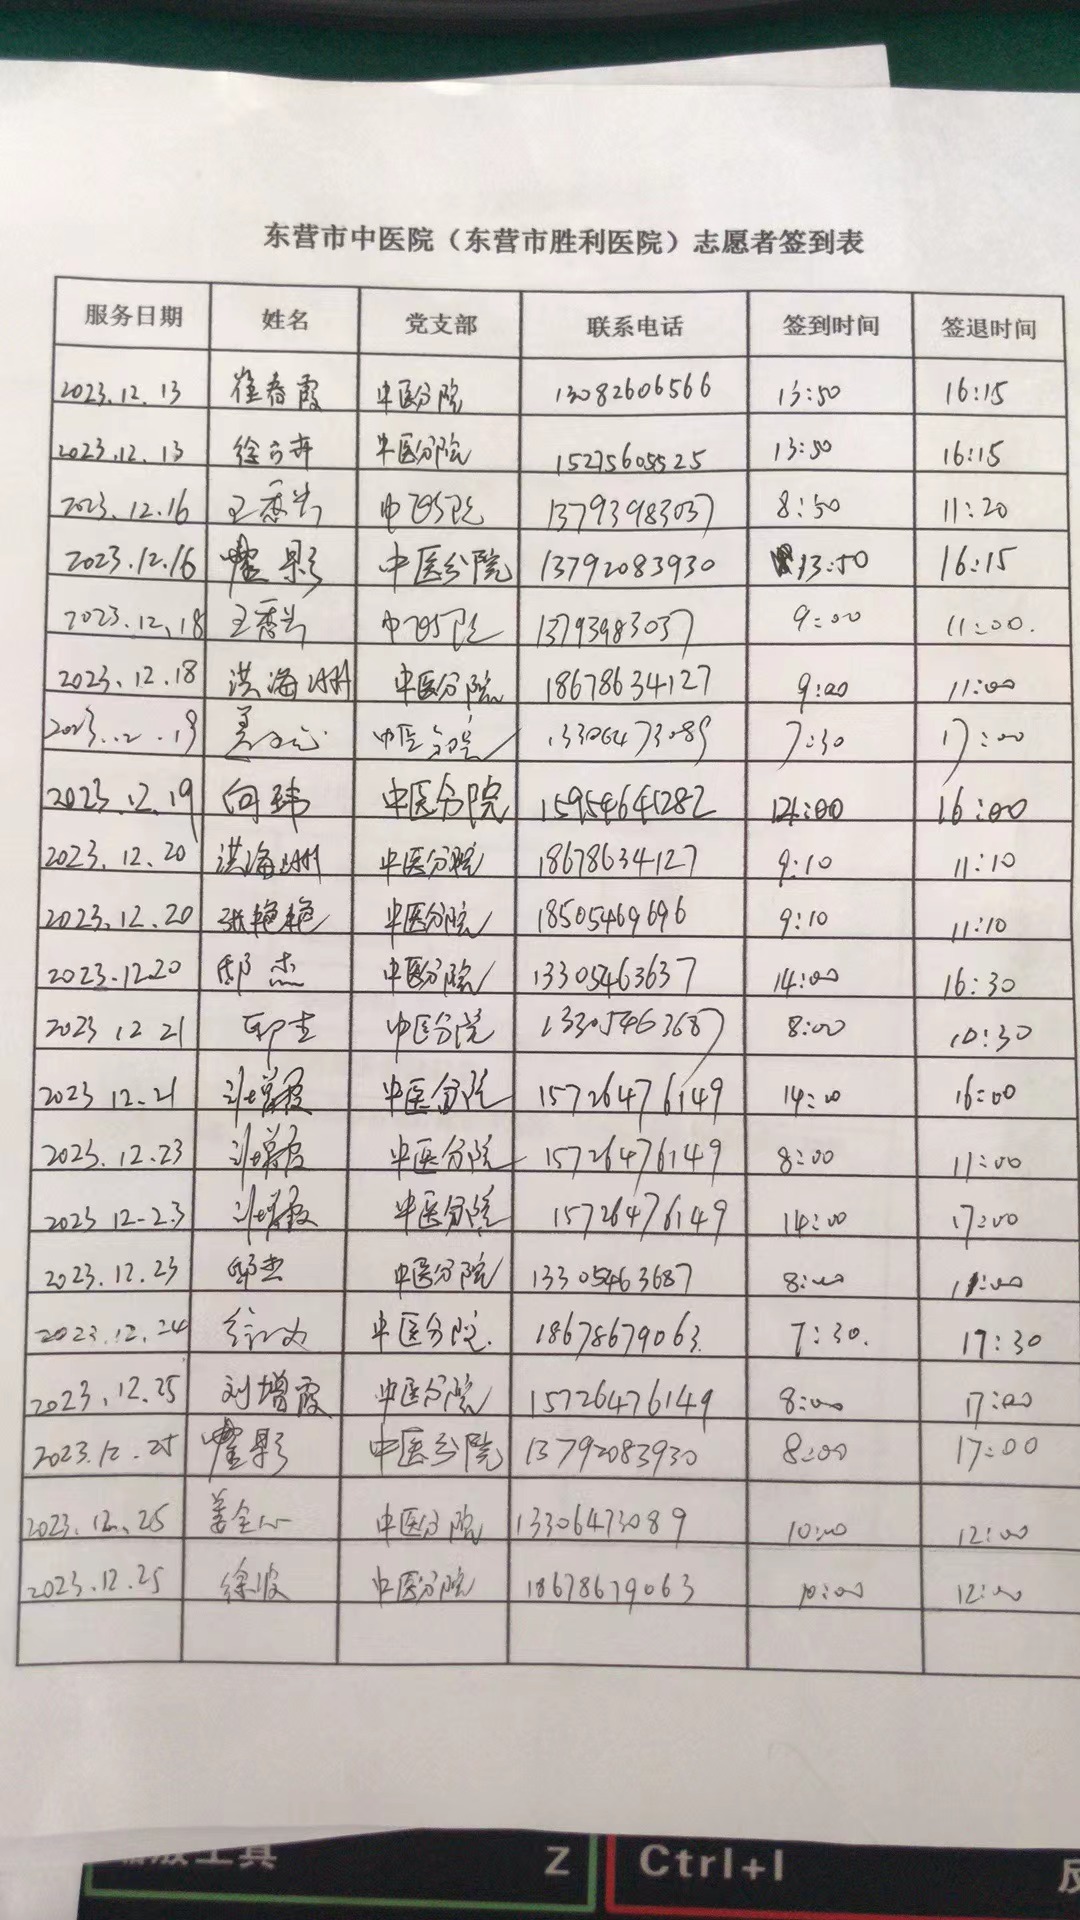 东营市中医院（东营市胜利医院）志愿者签到表
服务日期 姓名 党支部 联系电话 签到时间 签退时间
2023.12.13 崔春霞 中医分院 13082606566 13:50 16:15
2023.12.13 中医分院 15275605525 13:50 16:15
2023.12.16 中医分院 13793983037 8:50 11:20
2023.12.16 中医分院 13792083930 13:50 16:15
2023.12.18 中医分院 13793983037 9:00 11:00.
2023.12.18 洪海洲 中医分院 18678634127 9:00 11:00
中医分院 13306473089 7:30 17:00
2023.12.19 向玮 中医分院 15954641282 16:00
2023.12.20 洪海洲 中医分院 18678634127 9:10 11:10
2023.12.20 张艳艳 中医分院 18505469696 9:10 11:10
2023.12.20 邸杰 中医分院 13305463637 14:00 16:30
2023 12 21 中医分院 13305463687 8:00 10:30
2023 12.21 刘增霞 中医分院 15726476149 14:00 16:00
2023.12.23 刘增霞 中医分院 15726476149 8:00 11:00
2023 12-23 刘增霞 中医分院 15726476149 14:00 17:00
2023.12.23 邸杰 中医分院 13305463687 8:00 11:00
2023.12.24 中医分院. 18678679063. 7:30. 17:30
2023.12.25 刘增霞 中医分院 15726476149 8:00 17:00
2023.12.25 中医分院 13792083930 8:00 17:00
2023.12.25 中医分院 13306473089 10:00 12:00
2023.12.25 徐波 中医分院 18678679063 10:00 12:00
工具 Z Ctrl+I 反